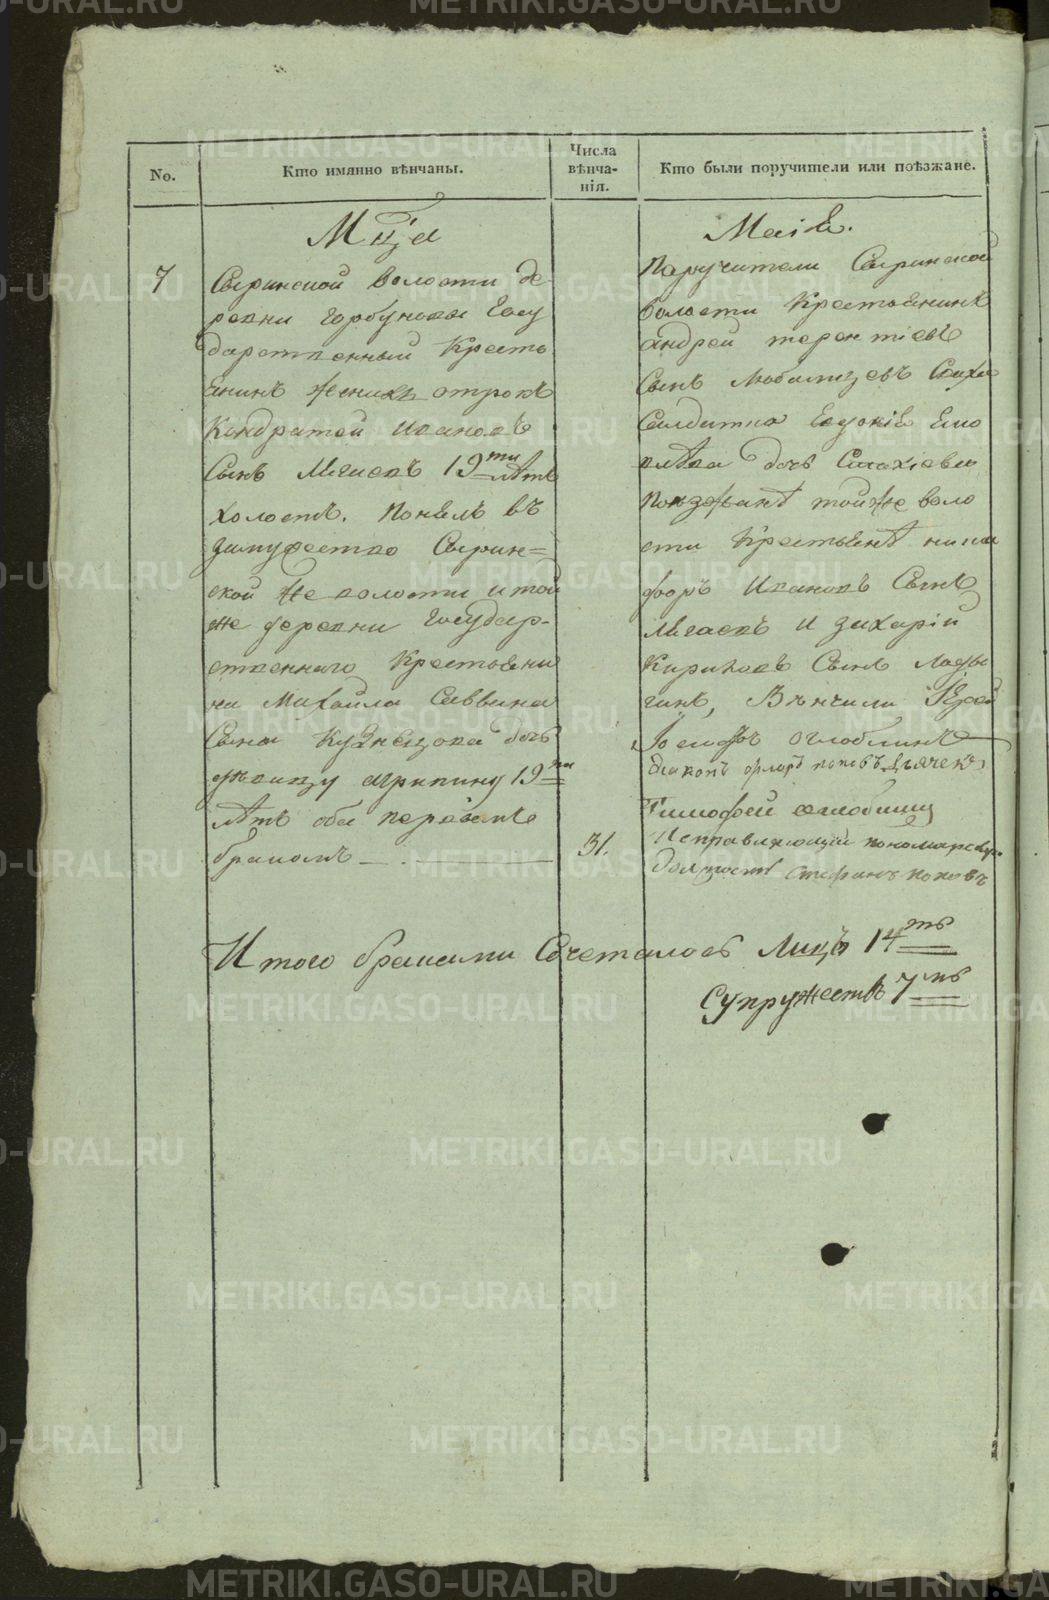 No.
Кто имянно вѣнчаны.
Числа вѣнча-нія.
Кто были поручители или поѣзжане.
Мца
Маіѧ.
7
Сыринской волости де
ревни Горбуновы Госу
дарственный Кресть
янинъ женихъ отрокъ
Кондратей Ивановъ
Сынъ Мягаевъ 19ти лѣтъ
холостъ. Понялъ въ
замужество Сырин=
ской же волости и той
же деревни Государ-
ственнаго Крестьяни
на Михайла Саввина
Сына Кузнецова дочь
дѣвицу Агрипину 19ти
лѣтъ оба первымъ
бракомъ
31.
Поручители Сыринской
волости Крестьянинъ
Андрей терентіевъ
Сынъ
Салдатка Евдокія
дочь
Поѣзжанѣ тойже воло
сти Крестьянѣ ники
форъ Ивановъ Сынъ
Мягаевъ и захарій
Кириловъ Сынъ Лады
гинъ, Вѣнчали Іерей
Іосифъ оглоблинъ
діаконъ флоръ поповъ Дьячекъ
Тимофей оглоблинъ
Исправляющій пономарскую
Должность Стефанъ поповъ
Итого браками Сочеталось Лицъ 14ть
Супружествъ 7мь
METRIKI.GASO-URAL.RU